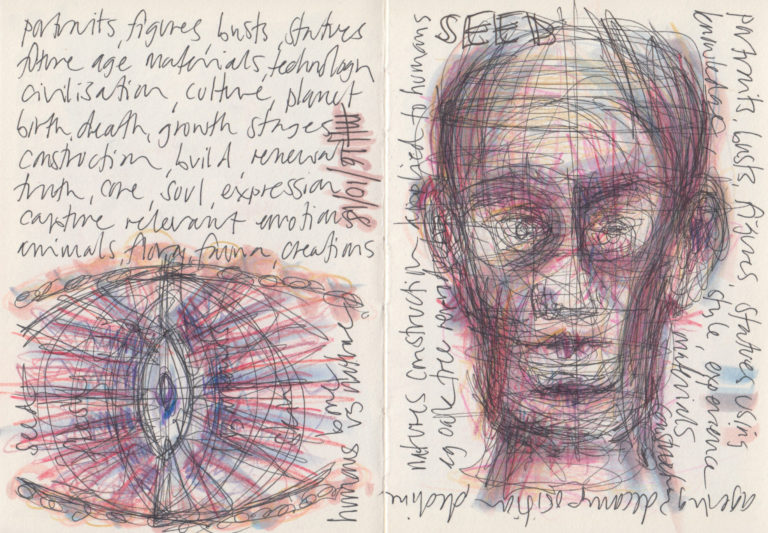 portraits, figures busts, statues
future age materials, technology
civilisation, culture, planet
birth, death, growth stages
construction, build, renewal
truth, core, soul, expression
capture relevant emotions
animals, flora, fauna, creations
humans vs nature
SEED
natures construction applied to humans
eg oak tree
portraits, busts, figures, statues using
knowledge, style experience
materials
ageing decomposition, decline